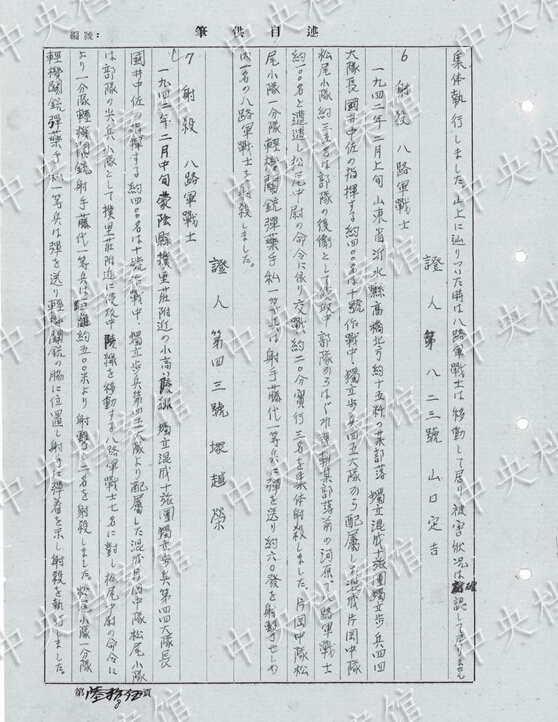 述自供筆
編號:
集体執行しました。山上に辿りついた時は八路軍戦士は移動して居り被害状況は確認して居りません
證人第八二三號 山口定吉
6 射殺 八路軍戦士
一九四二年二月上旬 山東省沂水縣高橋北方約十五粁の某部落 獨立混成十旅團獨立歩兵四四
大隊長 國井中佐の指揮する約四〇〇名は十號作戦中、獨立歩兵四五大隊から配属した混成片岡中隊
松尾小隊約三五名は部隊の後衛として
約一〇〇名と遭遇し松尾中尉の命令に依り交戦約二〇分實行三名を集体射殺しました。片岡中隊松
尾小隊一分隊輕機関銃彈藥手 私一等兵は射手藤代一等兵に彈を送り約六〇發を射撃させ
名の八路軍戦士を射殺しました。
證人第四三號 塚越榮
7 射殺 八路軍戦士
一九四二年二月中旬 蒙陰縣撲里莊附近の小高い陵線 獨立混成十旅團獨立歩兵第四四大隊長
國井中佐の指揮する約四〇〇名は十號作戦中 獨立歩兵第四五大隊より配属した混成片岡中隊松尾小隊
は部隊の尖兵小隊として撲里莊附近に侵攻中 陵線を移動する八路軍戦士七名に對し松尾中尉の命令に
より一分隊輕機関銃射手藤代一等兵は距離約五〇〇米より射撃し二名を射殺しました。松尾小隊一分隊
輕機関銃彈藥手 私一等兵は彈を送り輕機関銃の脇に位置し射手に彈着を示し射殺を執行しました。
第 頁
中央档案馆